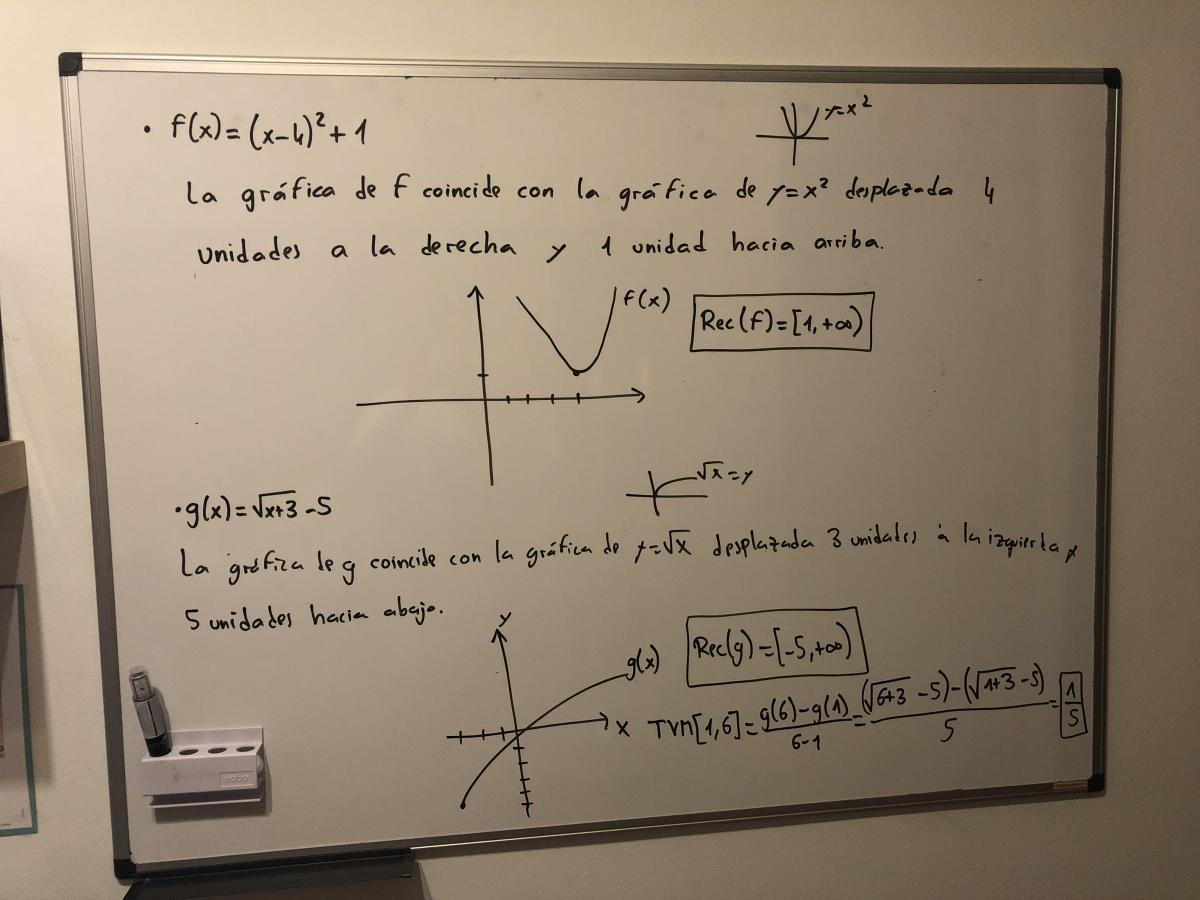 y=x²
• f(x)=(x-4)²+1
La gráfica de f coincide con la gráfica de y=x² desplazada 4
unidades a la derecha y 1 unidad hacia arriba.
f(x)
Rec(f)=[1,+∞)
√x=y
• g(x)=√x+3 -5
La gráfica de g coincide con la gráfica de y=√x desplazada 3 unidades a la izquierda y
5 unidades hacia abajo.
y
g(x)
x
Rec(g)=[-5,+∞)
TVM[1,6]=g(6)-g(1)/6-1=(√6+3 -5)-(√1+3 -5)/5=1/5
nobo